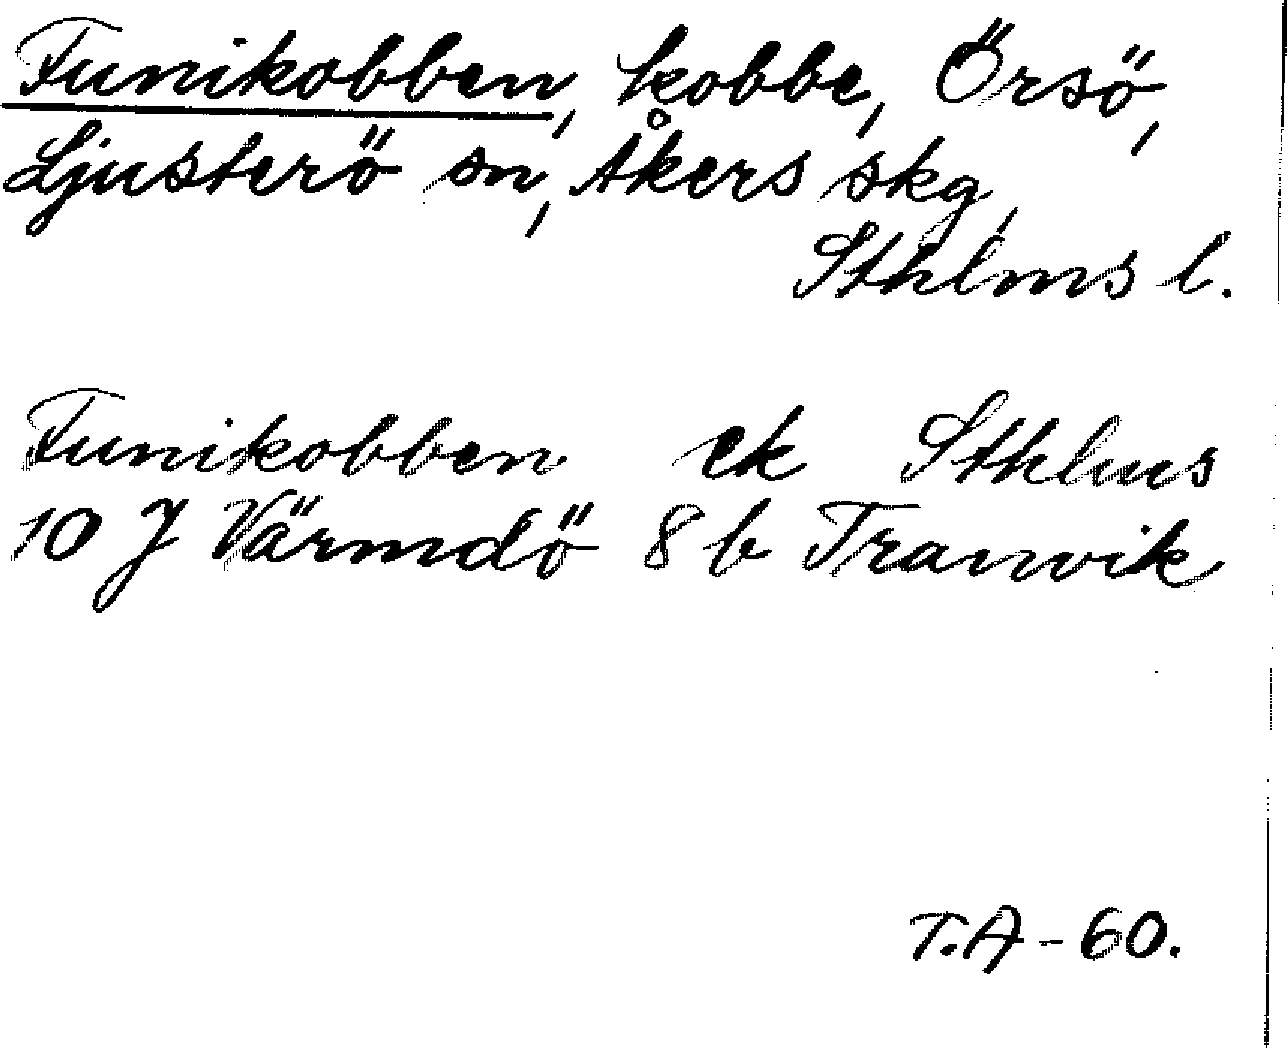 Funikobben, kobbe, Örsö,
Ljusterö sn, Åkers skg,
Sthlms l.
Funikobben ek Sthlms
10 J Värmdö 8 b Tranvik
T.A-60.